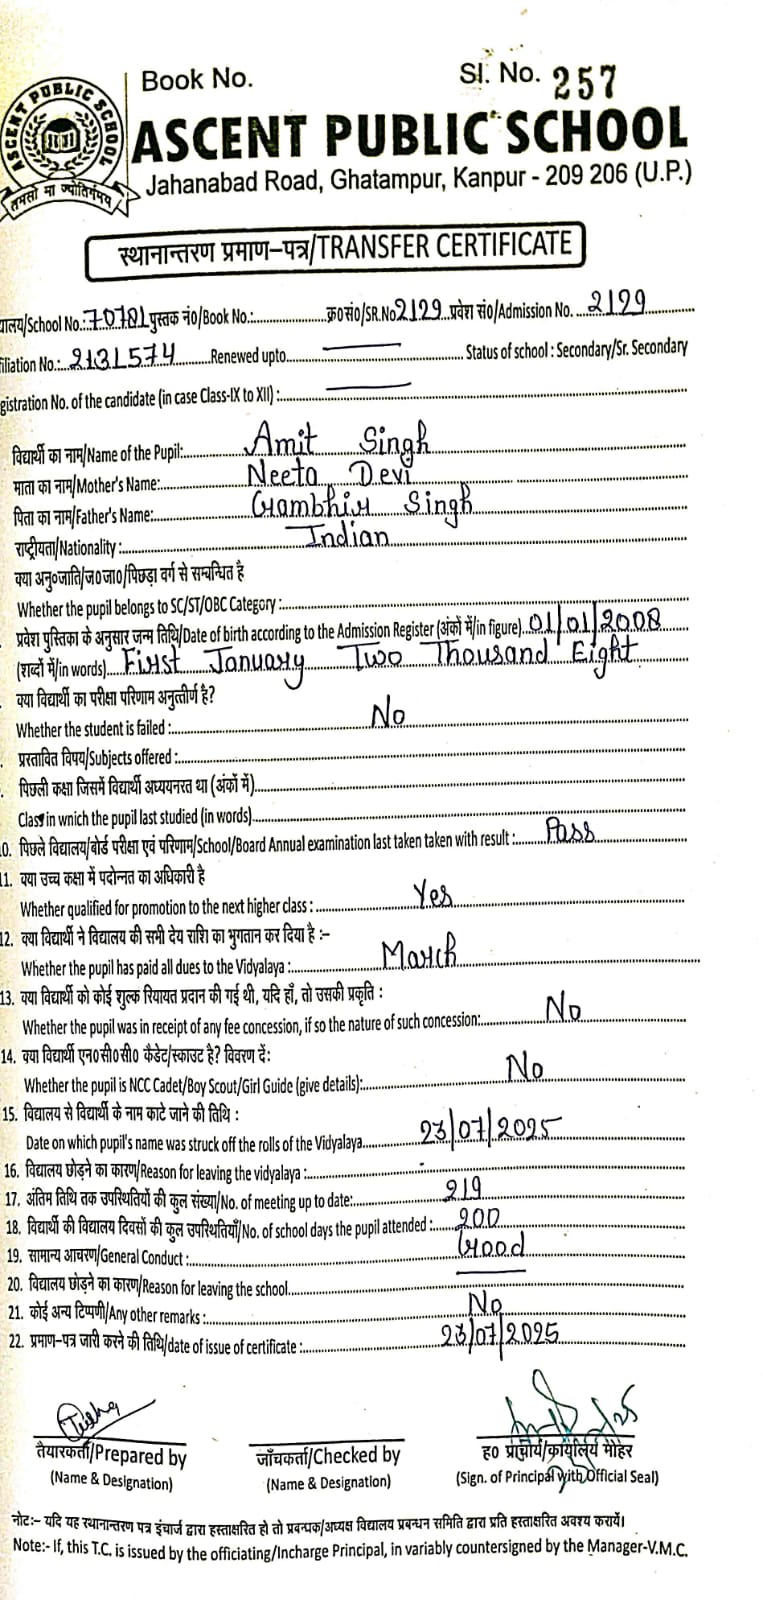 Book No.
Sl. No. 257
ASCENT PUBLIC SCHOOL
तमसो मा ज्योतिर्गमय
ASCENT PUBLIC SCHOOL
Jahanabad Road, Ghatampur, Kanpur - 209 206 (U.P.)
स्थानान्तरण प्रमाण-पत्र/TRANSFER CERTIFICATE
ालय/School No.:70781 पुस्तक नं०/Book No.:.............. क्र०सं०/SR.No 2129 प्रवेश सं०/Admission No. 2129
filiation No.: 2131574 Renewed upto.......... Status of school : Secondary/Sr. Secondary
gistration No. of the candidate (in case Class-IX to XII) :
विद्यार्थी का नाम/Name of the Pupil: Amit Singh
माता का नाम/Mother's Name: Neeta Devi
पिता का नाम/Father's Name: Gambhir Singh
राष्ट्रीयता/Nationality : Indian
क्या अनु०जाति/ज०जा०/पिछड़ा वर्ग से सम्बन्धित है
Whether the pupil belongs to SC/ST/OBC Category :
प्रवेश पुस्तिका के अनुसार जन्म तिथि/Date of birth according to the Admission Register (अंकों में/in figure). 01/01/2008
(शब्दों में/in words). First January Two Thousand Eight
क्या विद्यार्थी का परीक्षा परिणाम अनुत्तीर्ण है?
Whether the student is failed : No
प्रस्तावित विषय/Subjects offered :
पिछली कक्षा जिसमें विद्यार्थी अध्ययनरत था (अंकों में)
Class in wnich the pupil last studied (in words)
0. पिछले विद्यालय/बोर्ड परीक्षा एवं परिणाम/School/Board Annual examination last taken taken with result : Pass
11. क्या उच्च कक्षा में पदोन्नत का अधिकारी है
Whether qualified for promotion to the next higher class : Yes
12. क्या विद्यार्थी ने विद्यालय की सभी देय राशि का भुगतान कर दिया है :-
Whether the pupil has paid all dues to the Vidyalaya : March
13. क्या विद्यार्थी को कोई शुल्क रियायत प्रदान की गई थी, यदि हाँ, तो उसकी प्रकृति :
Whether the pupil was in receipt of any fee concession, if so the nature of such concession: No
14. क्या विद्यार्थी एन०सी०सी० कैडेट/स्काउट है? विवरण दें:
Whether the pupil is NCC Cadet/Boy Scout/Girl Guide (give details): No
15. विद्यालय से विद्यार्थी के नाम काटे जाने की तिथि :
Date on which pupil's name was struck off the rolls of the Vidyalaya 23/07/2025
16. विद्यालय छोड़ने का कारण/Reason for leaving the vidyalaya :
17. अंतिम तिथि तक उपस्थितियों की कुल संख्या/No. of meeting up to date: 219
18. विद्यार्थी की विद्यालय दिवसों की कुल उपस्थितियाँ/No. of school days the pupil attended : 200
19. सामान्य आचरण/General Conduct : Good
20. विद्यालय छोड़ने का कारण/Reason for leaving the school
21. कोई अन्य टिप्पणी/Any other remarks : No
22. प्रमाण-पत्र जारी करने की तिथि/date of issue of certificate : 23/07/2025
तैयारकर्ता/Prepared by
जाँचकर्ता/Checked by
ह० प्राचार्य/कार्यालय मोहर
(Name & Designation)
(Name & Designation)
(Sign. of Principal with Official Seal)
नोट:- यदि यह स्थानान्तरण पत्र इंचार्ज द्वारा हस्ताक्षरित हो तो प्रबन्धक/अध्यक्ष विद्यालय प्रबन्धन समिति द्वारा प्रति हस्ताक्षरित अवश्य करायें।
Note:- If, this T.C. is issued by the officiating/Incharge Principal, in variably countersigned by the Manager-V.M.C.